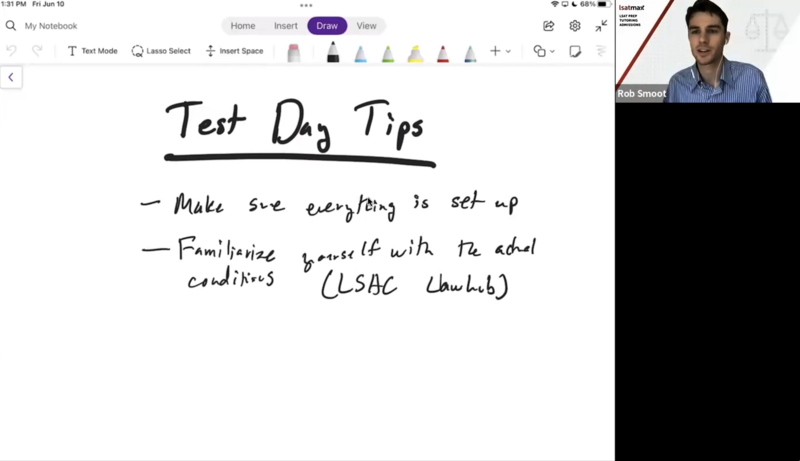 1:31 PM Fri Jun 10
68%
My Notebook
Home Insert Draw View
Text Mode Lasso Select Insert Space
Test Day Tips
— Make sure everything is set up
— Familiarize yourself with the actual
conditions (LSAC Lawhub)
lsatmax
LSAT PREP
TUTORING
ADMISSIONS
Rob Smoot